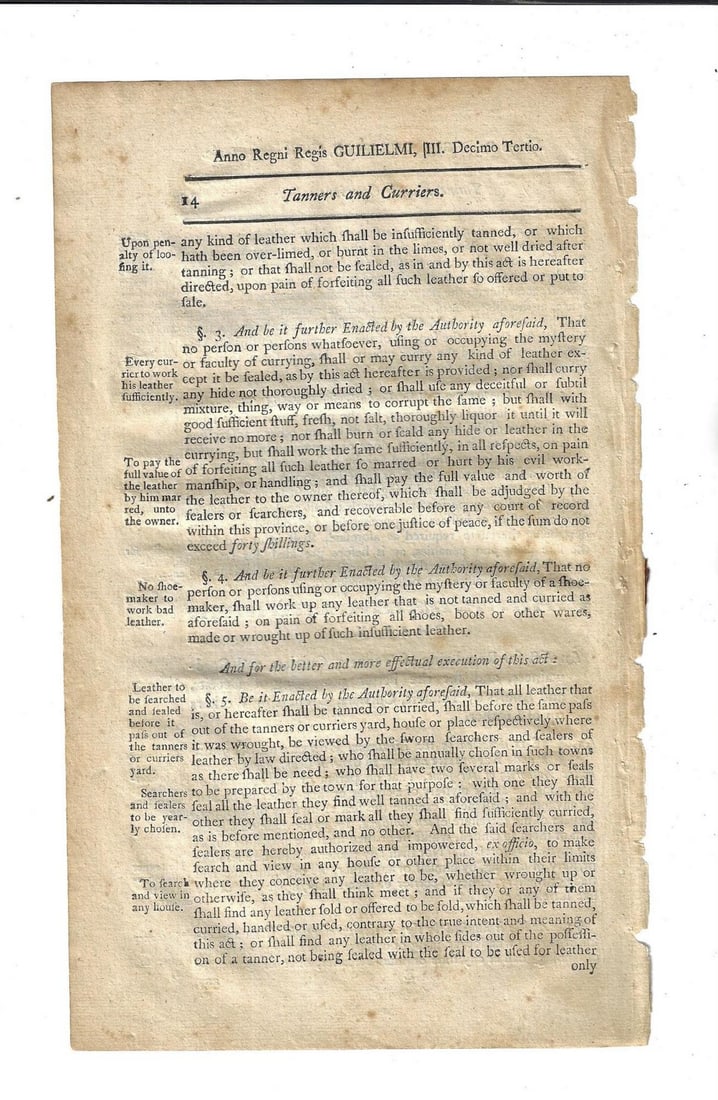 Anno Regni Regis GUILIELMI, III. Decimo Tertio.
14
Tanners and Curriers.
Upon pen-
alty of loo-
ſing it.
any kind of leather which ſhall be inſufficiently tanned, or which
hath been over-limed, or burnt in the limes, or not well dried after
tanning ; or that ſhall not be ſealed, as in and by this act is hereafter
directed, upon pain of forfeiting all ſuch leather ſo offered or put to
ſale.
§. 3. And be it further Enacted by the Authority aforeſaid, That
no perſon or perſons whatſoever, uſing or occupying the myſtery
Every cur-
rier to work
his leather
ſufficiently.
or faculty of currying, ſhall or may curry any kind of leather ex-
cept it be ſealed, as by this act hereafter is provided ; nor ſhall curry
any hide not thoroughly dried ; or ſhall uſe any deceitful or ſubtil
mixture, thing, way or means to corrupt the ſame ; but ſhall with
good ſufficient ſtuff, freſh, not ſalt, thoroughly liquor it until it will
receive no more ; nor ſhall burn or ſcald any hide or leather in the
currying, but ſhall work the ſame ſufficiently, in all reſpects, on pain
To pay the
full value of
the leather
by him mar
red, unto
the owner.
of forfeiting all ſuch leather ſo marred or hurt by his evil work-
manſhip, or handling ; and ſhall pay the full value and worth of
the leather to the owner thereof, which ſhall be adjudged by the
ſealers or ſearchers, and recoverable before any court of record
within this province, or before one juſtice of peace, if the ſum do not
exceed forty ſhillings.
§. 4. And be it further Enacted by the Authority aforeſaid, That no
No ſhoe-
maker to
work bad
leather.
perſon or perſons uſing or occupying the myſtery or faculty of a ſhoe-
maker, ſhall work up any leather that is not tanned and curried as
aforeſaid ; on pain of forfeiting all ſhoes, boots or other wares,
made or wrought up of ſuch inſufficient leather.
And for the better and more effectual execution of this act :
Leather to
be ſearched
and ſealed
before it
paſs out of
the tanners
or curriers
yard.
§. 5. Be it Enacted by the Authority aforeſaid, That all leather that
is, or hereafter ſhall be tanned or curried, ſhall before the ſame paſs
out of the tanners or curriers yard, houſe or place reſpectively where
it was wrought, be viewed by the ſworn ſearchers and ſealers of
leather by law directed ; who ſhall be annually choſen in ſuch towns
as there ſhall be need ; who ſhall have two ſeveral marks or ſeals
Searchers
and ſealers
to be year-
ly choſen.
to be prepared by the town for that purpoſe : with one they ſhall
ſeal all the leather they find well tanned as aforeſaid ; and with the
other they ſhall ſeal or mark all they ſhall find ſufficiently curried,
as is before mentioned, and no other. And the ſaid ſearchers and
ſealers are hereby authorized and impowered, ex officio, to make
ſearch and view in any houſe or other place within their limits
To ſearch
and view in
any houſe.
where they conceive any leather to be, whether wrought up or
otherwiſe, as they ſhall think meet ; and if they or any of them
ſhall find any leather ſold or offered to be ſold, which ſhall be tanned,
curried, handled or uſed, contrary to the true intent and meaning of
this act ; or ſhall find any leather in whole ſides out of the poſſeſſi-
on of a tanner, not being ſealed with the ſeal to be uſed for leather
only